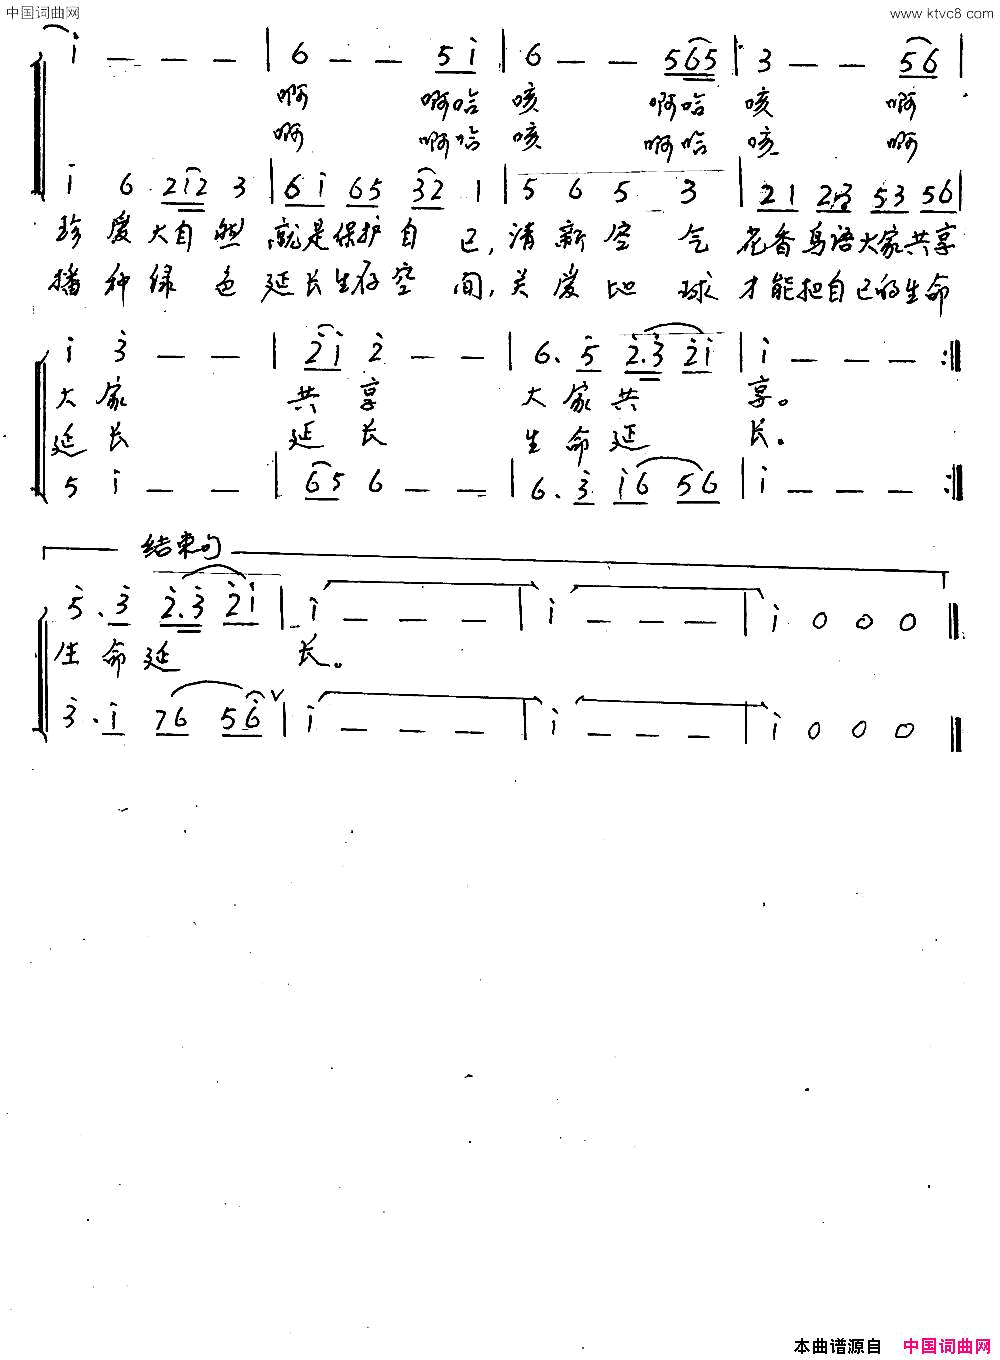 中国词曲网 www.ktvc8.com
i - - - | 6 - - 5 i | 6 - - 5 6 5 | 3 - - 5 6 |
啊 啊哈 咳 啊哈 咳 啊
啊 啊哈 咳 啊哈 咳 啊
i 6 2 i 2 3 | 6 i 6 5 3 2 1 | 5 6 5 3 | 2 1 2 3 5 3 5 6 |
珍爱大自然 就是保护自己,清新空气 花香鸟语大家共享
播种绿色 延长生存空间,关爱地球 才能把自己的生命
i 3 - - | 2 i 2 - - | 6. 5 2. 3 2 i | i - - - :||
大家 共享 大家共 享。
延长 延长 生命延 长。
5 i - - | 6 5 6 - - | 6. 3 i 6 5 6 | i - - - :||
结束句
5. 3 2. 3 2 i | i - - - | i - - - | i 0 0 0 ||
生命延 长。
3. i 7 6 5 6 V | i - - - | i - - - | i 0 0 0 ||
本曲谱源自 中国词曲网